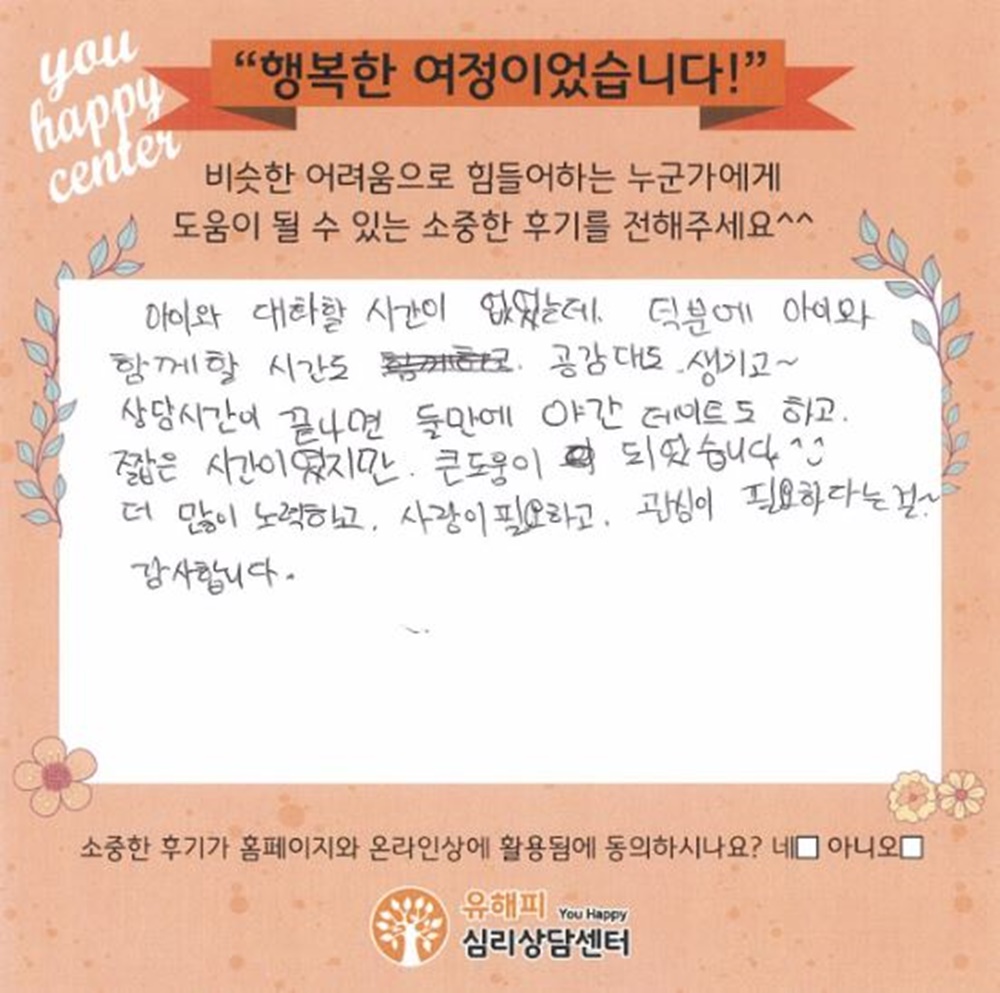 you
happy
center
“행복한 여정이었습니다!”
비슷한 어려움으로 힘들어하는 누군가에게
도움이 될 수 있는 소중한 후기를 전해주세요^^
아이와 대화할 시간이 없었는데. 덕분에 아이와
함께할 시간도 함께하고. 공감대도 생기고~
상담시간이 끝나면 둘만에 야간 데이트도 하고.
짧은 시간이였지만. 큰도움이 되었습니다^^
더 많이 노력하고. 사랑이필요하고. 관심이 필요하다는걸~
감사합니다.
소중한 후기가 홈페이지와 온라인상에 활용됨에 동의하시나요? 네□ 아니오□
유해피 You Happy
심리상담센터